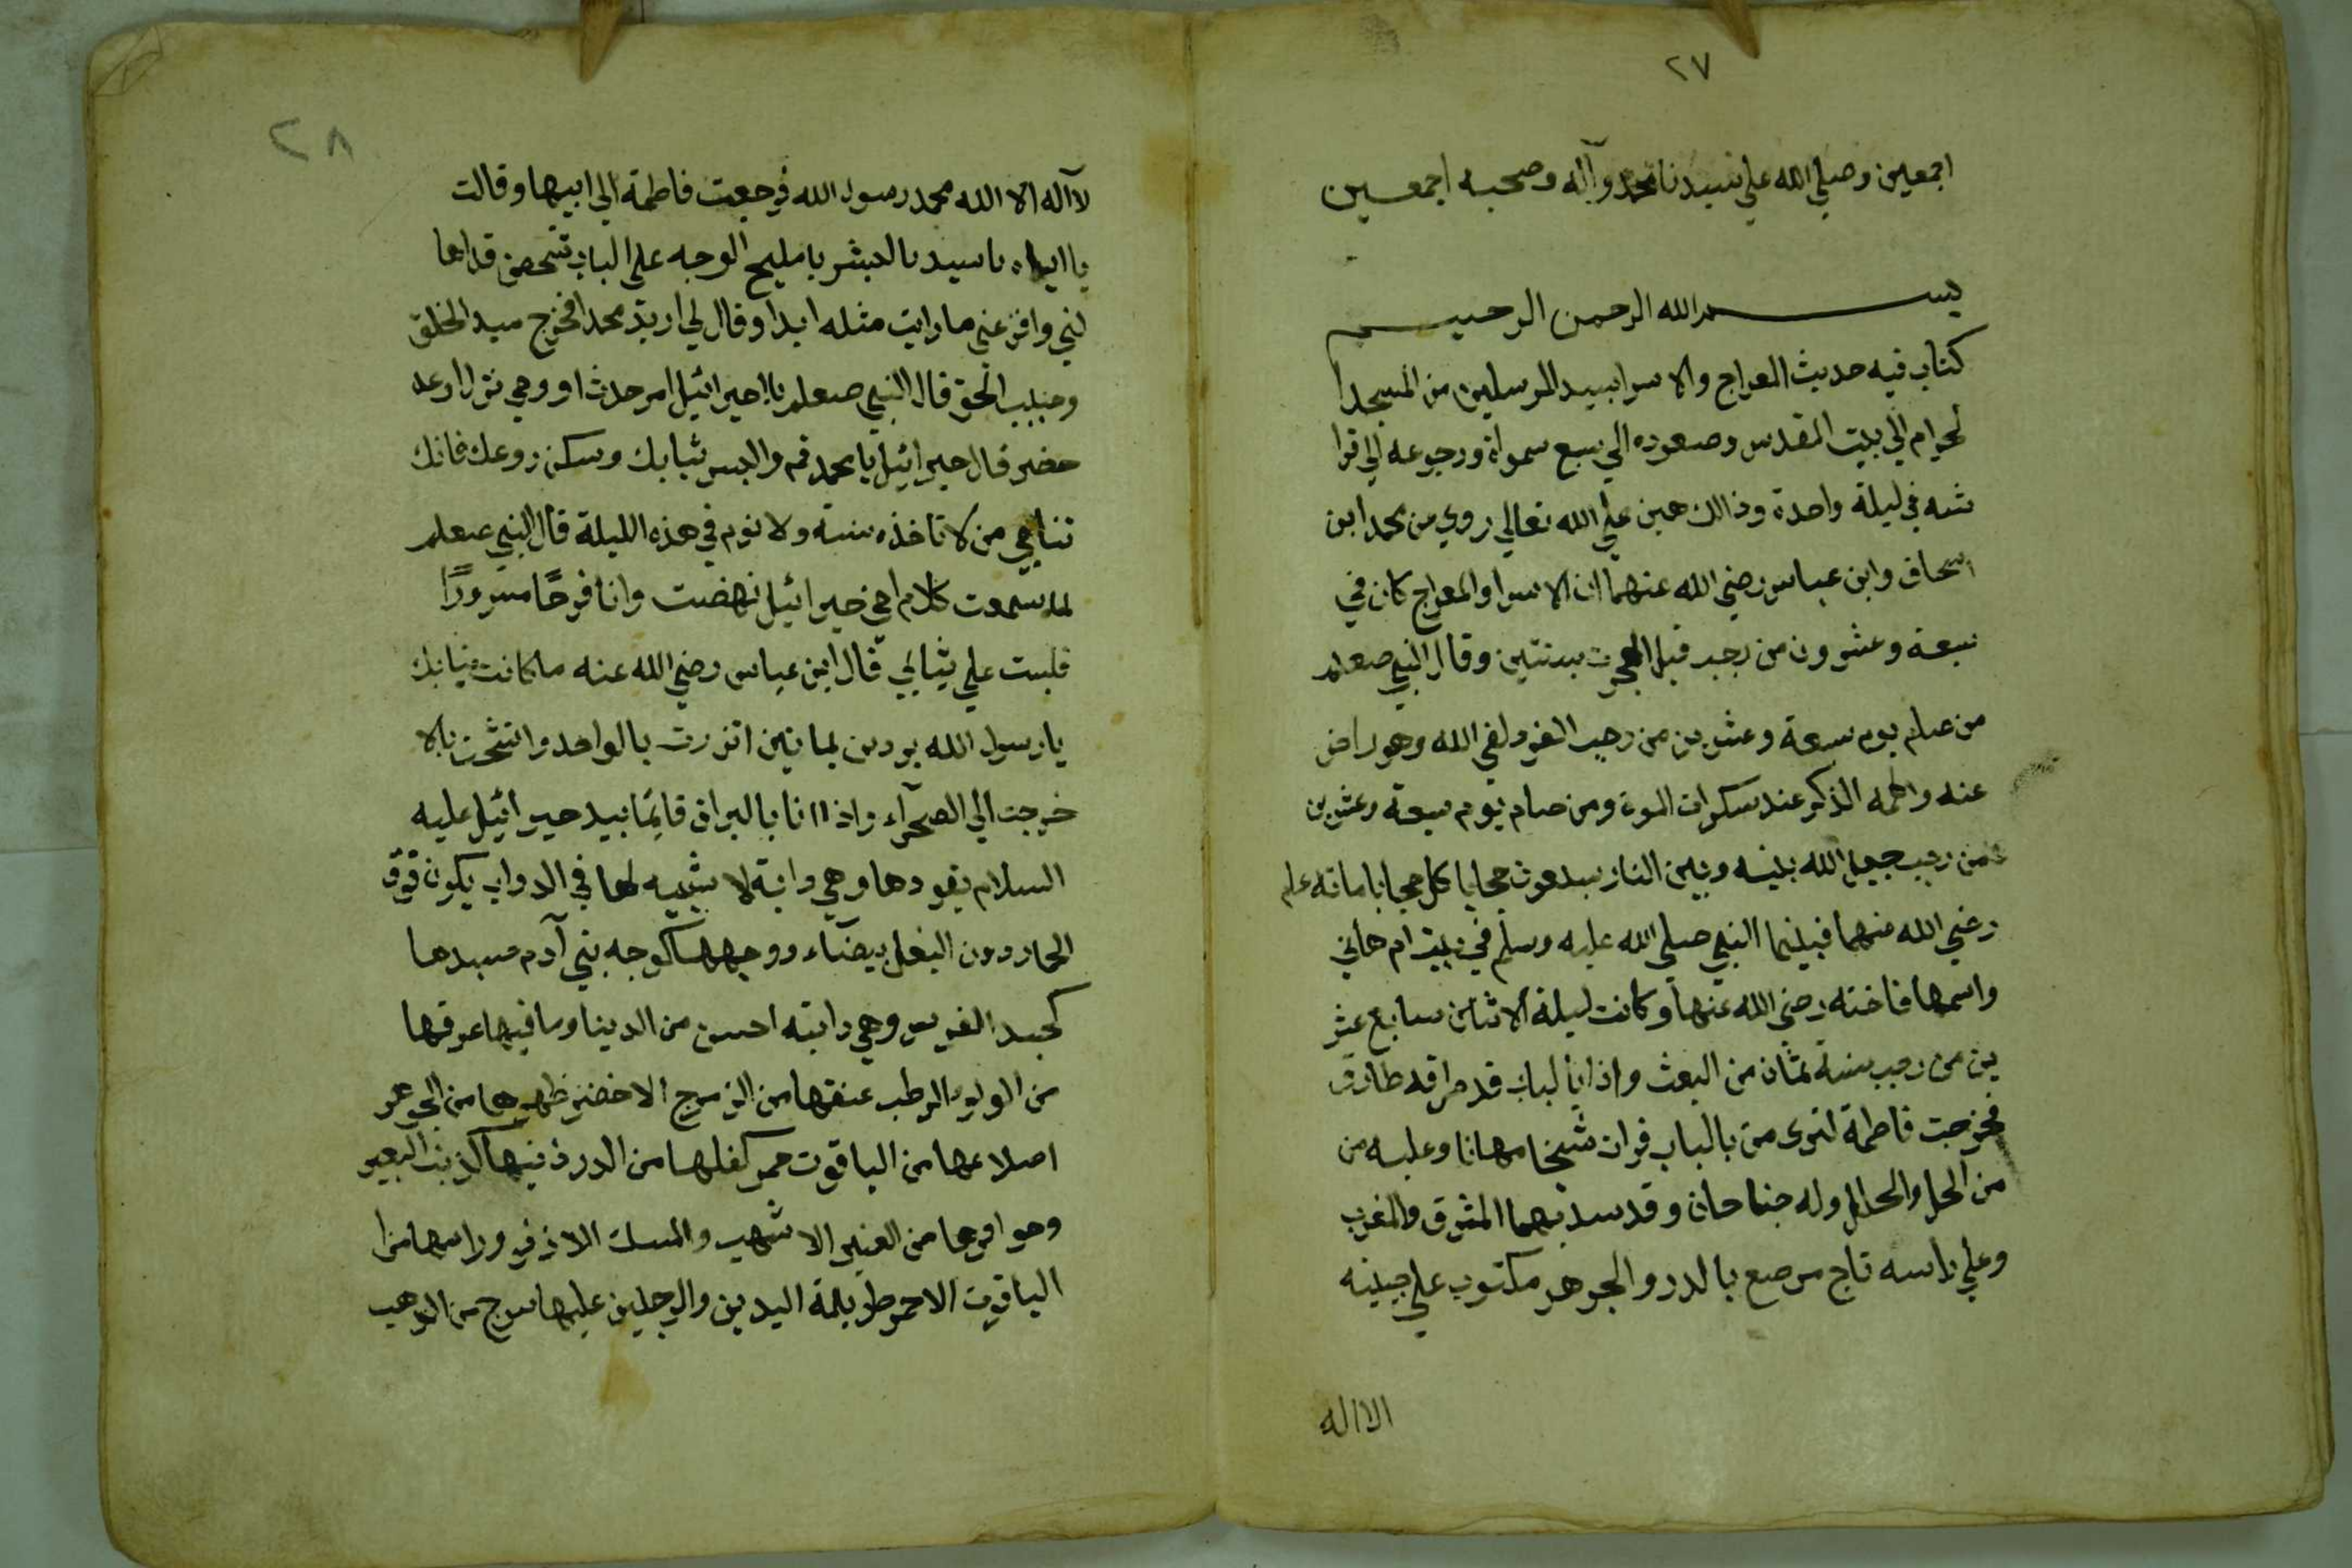 ٢٧
اجمعين وصلي الله علي سيدنا محمد وآله وصحبه اجمعسين
بسم الله الرحمن الرحيم
كتاب فيه حديث المعراج والاسرا بسيد المرسلين من المسجد ا
لحرام الي بيت المقدس وصعوده الي سبع سمواة ورجوعه الي فرا
شه في ليلة واحدة وذالك هين علي الله تعالي روي من محمد ابن
اسحاق وابن عباس رضي الله عنهما ان الاسرا والمعراج كان في
سبعة وعشرون من رجب قبل الهجرت بسنتين وقال النبي صعلم
من صام يوم سبعة وعشرين من رجب الفرد لقي الله وهو راض
عنه والهمه الذكر عند سكرات الموة ومن صام يوم سبعة وعشرين
من رجب جعل الله بينه وبين النار سبعون حجابا كل حجابا مانه علم
رضي الله منهما فبينما النبي صلي الله عليه وسلم في بيت ام هاني
واسمها فاخته رضي الله عنها وكانت ليلة الاثنان سابع عشر
ين من رجب سنة ثمان من البعث واذا بالباب قد طرقه طارق
فخرجت فاطمة لترى من بالباب فرات شخنا مهانا وعليه من
من الحل والحلل وله جناحان وقد سد بهما المشرق والمغرب
وعلي راسه تاج مرصع بالدر والجوهر مكتوب علي جبينه
الااله
٢٨
لاآله الا الله محمد رسول الله فرجعت فاطمة الي ابيها وقالت
يا ابتاه يا سيد البشر يا مليح الوجه علي الباب شخص قد اها
لني وافزعني ما رايت مثله ابدا وقال لي اريد محمد افخرج سيد الخلق
وحبيب الحق قال النبي صعلم يا اخي جبرائيل امر حدث او وحي نزل او عد
حضر قال جبرائيل يا محمد قم والبس ثيابك وسكن روعك فانك
تناجي من لا تاخذه سنة ولا نوم في هذه الليلة قال النبي صعلم
لما سمعت كلام اخي جبرائيل نهضت وانا فرحًا مسرورًا
فلبست علي ثيابي قال ابن عباس رضي الله عنه ما كانت ثيابك
يا رسول الله بردين يمانيتين اتزرت بالواحد واتشحت بالا
خرجت الي الصحرآء واذا انا بالبراق قايمًا بيد جبرائيل عليه
السلام يقودها وهي دابة لا شبيه لها في الدواب يكون فوق
الحمار ودون البغل بيضآء ووجهها كوجه بني آدم جسدها
كجسد الفرس وهي دابته احسن من الدينا وما فيها عرفها
من الولو الرطب عنقها من الزمرج الاخضر ظهرها من الجوهر
اصلاعها من الياقوت حمر كفلها من الدر ذنبها كذنب البعير
وحوافرها من العنبر الاشهب والمسك الاذفر وراسها من ا
الياقوت الاحمر طويلة اليدين والرجلين عليها سرج من الذهب